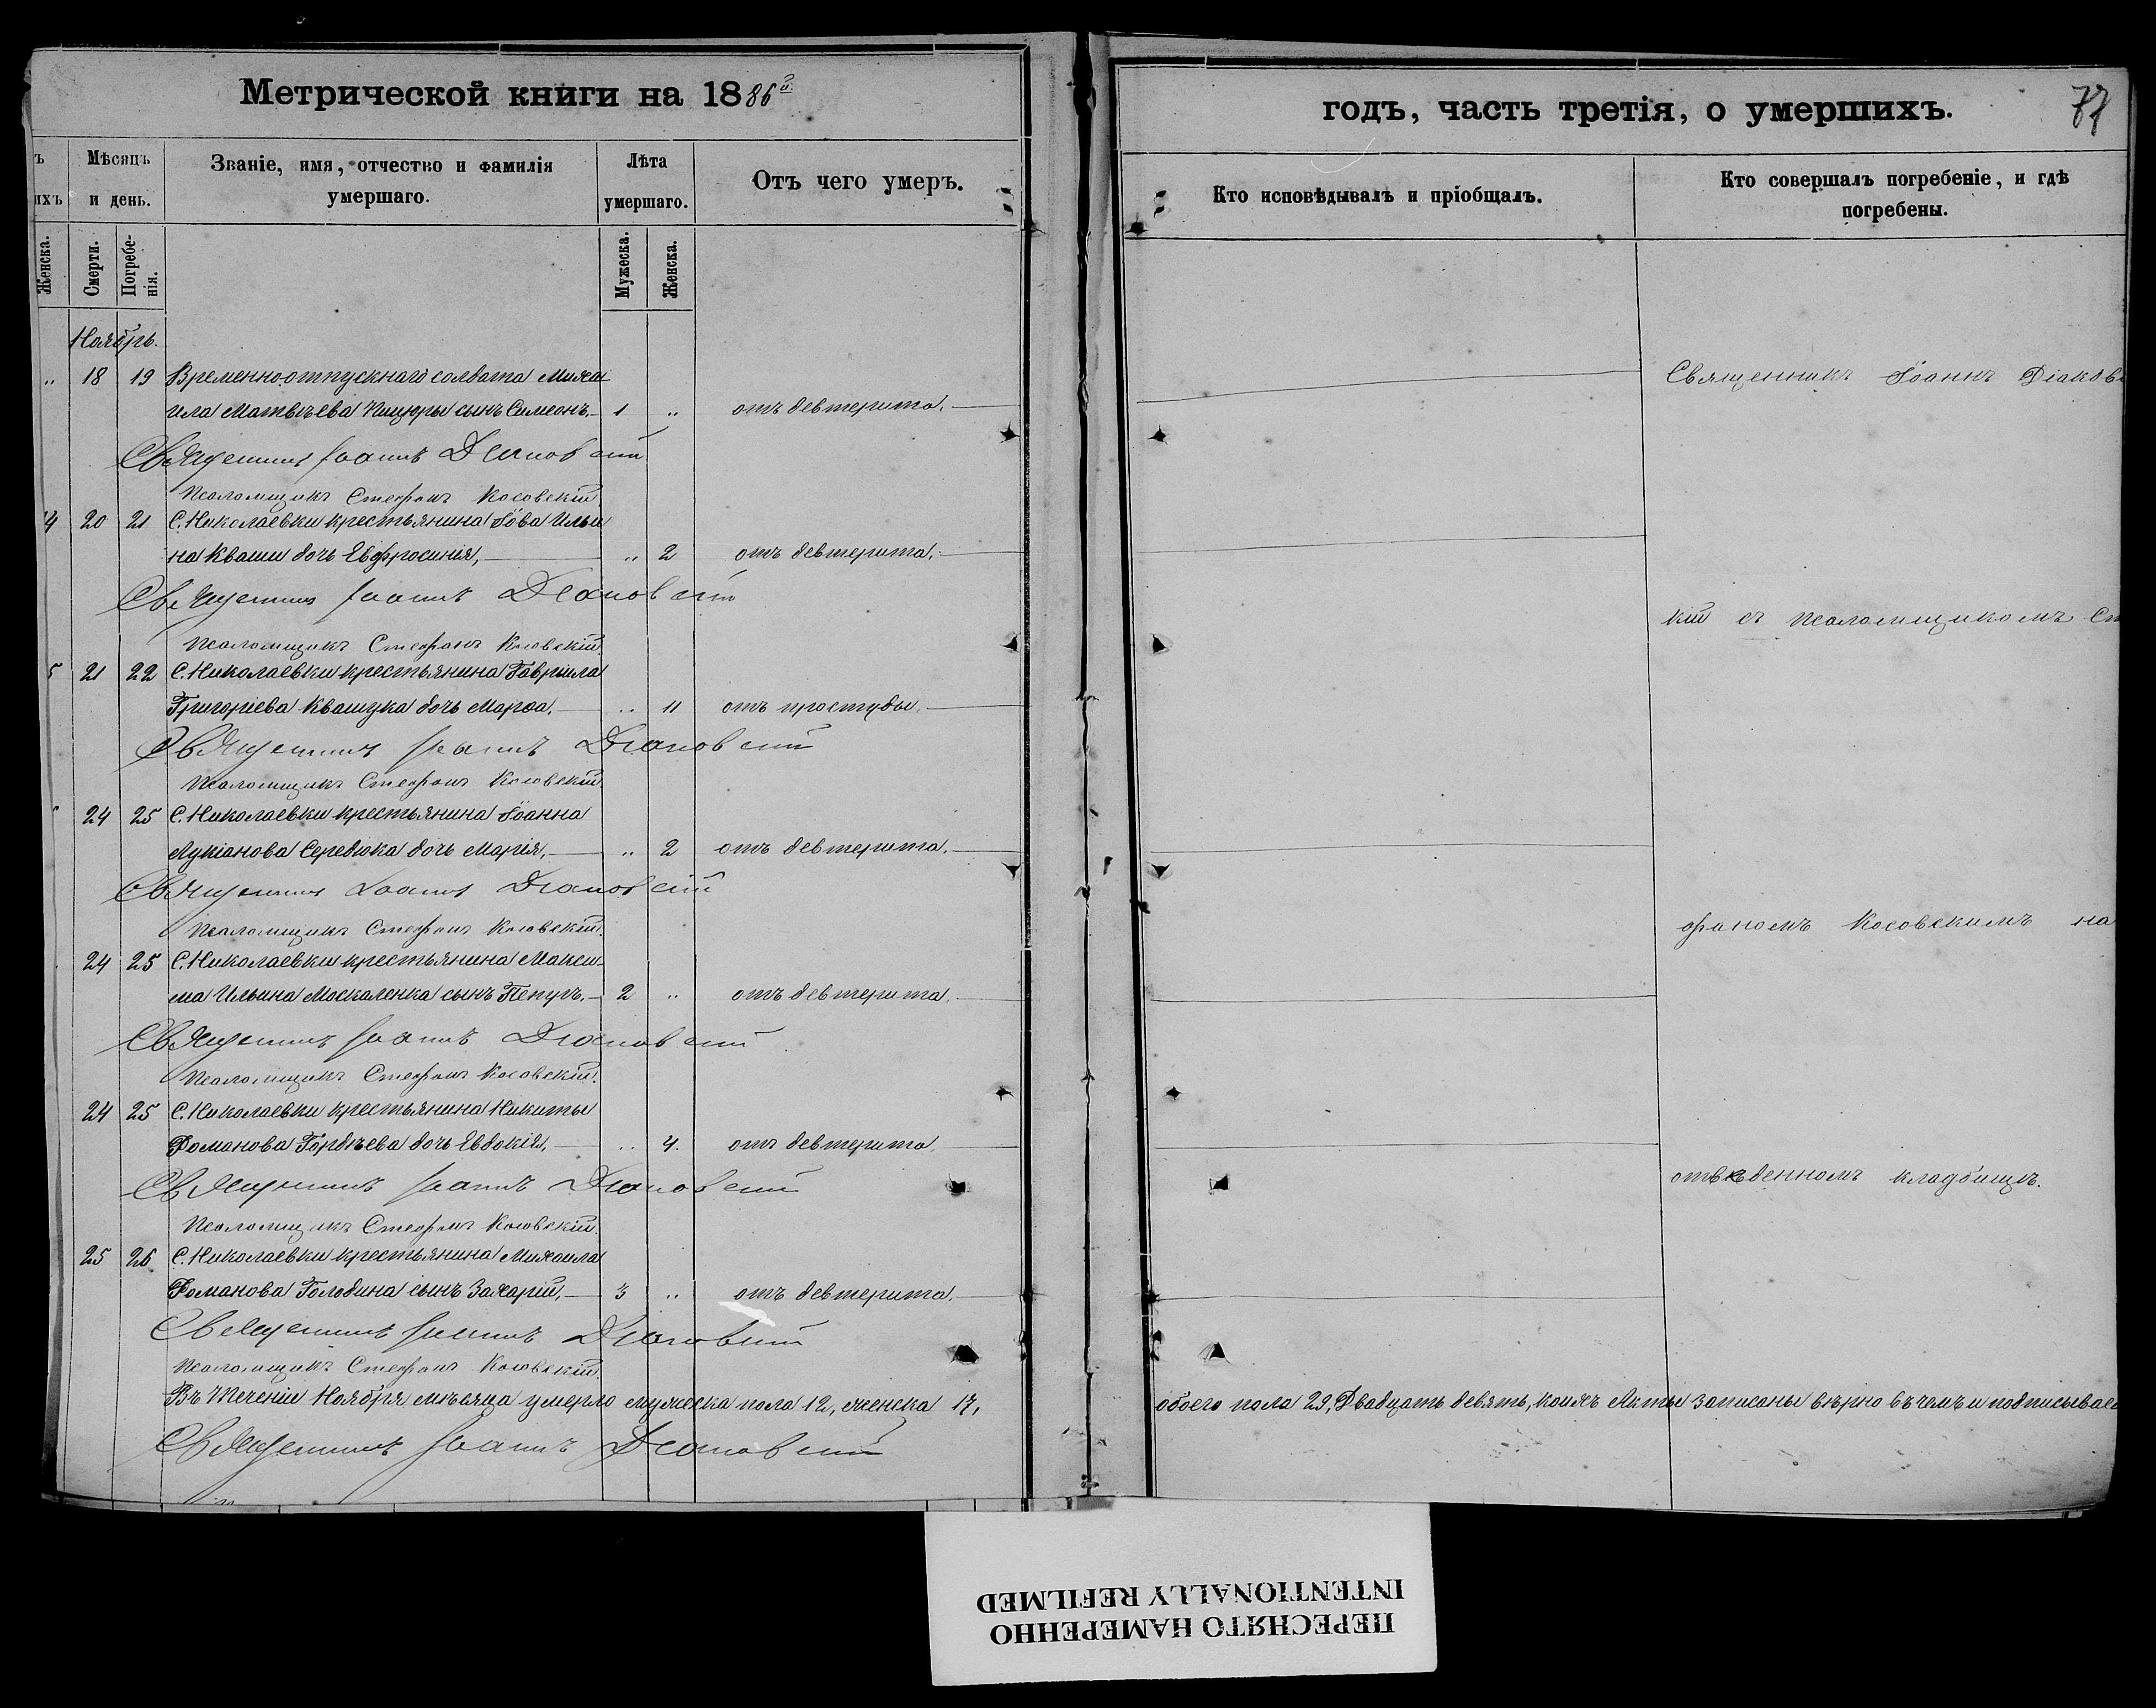 Метрической книги на 1886й
годъ, часть третія, о умершихъ.
77
ъ
ихъ
Мѣсяцъ
и день.
Званіе, имя, отчество и фамилія
умершаго.
Лѣта
умершаго.
Отъ чего умеръ.
Кто исповѣдывалъ и пріобщалъ.
Кто совершалъ погребеніе, и гдѣ
погребены.
Женска.
Смерти.
Погребе-
нія.
Мужеска.
Женска.
Ноябрь.
18 19 Временно-отпускнаго солдата Миха-
ила Матвѣева Кицюры сынъ Симеонъ. 1 „ отъ девтерита.
Священникъ Іоаннъ Діаковскій
Псаломщикъ Стефанъ Косовскій
14 20 21 С. Николаевки крестьянина Іова Ильи
на Кваши дочь Евфросинія, „ 2 отъ девтерита.
Священникъ Іоаннъ Діаковскій
Псаломщикъ Стефанъ Косовскій
5 21 22 С. Николаевки крестьянина Гавріила
Григоріева Квашука дочь Марѳа. „ 11 отъ простуды.
Священникъ Іоаннъ Діаковскій
Псаломщикъ Стефанъ Косовскій
24 25 С. Николаевки крестьянина Іоанна
Лукіанова Середюка дочь Марія. „ 2 отъ девтерита.
Священникъ Іоаннъ Діаковскій
Псаломщикъ Стефанъ Косовскій.
24 25 С. Николаевки крестьянина Макси-
ма Ильина Москаленка сынъ 2 „ отъ девтерита.
Священникъ Іоаннъ Діаковскій
Псаломщикъ Стефанъ Косовскій.
24 25 С. Николаевки крестьянина Никиты
Романова Гордѣева дочь Евдокія, „ 4. отъ девтерита.
Священникъ Іоаннъ Діаковскій
Псаломщикъ Стефанъ Косовскій.
25 26 С. Николаевки крестьянина Михаила
Романова Голодина сынъ Захарій, 3 „ отъ девтерита.
Священникъ Іоаннъ Діаковскій
Псаломщикъ Стефанъ Косовскій.
Въ теченіи Ноября мѣсяца умерло мужеска пола 12, женска 17,
Священникъ Іоаннъ Діаковскій
Священникъ Іоаннъ Діаковс
кій съ псаломщикомъ Ст
фаномъ Косовскимъ на
отведенномъ кладбищѣ.
обоего пола 29, Двадцать девять, коихъ Акты записаны вѣрно въ чемъ и подписываем
ПЕРЕСНЯТО НАМЕРЕННО
INTENTIONALLY REFILMED